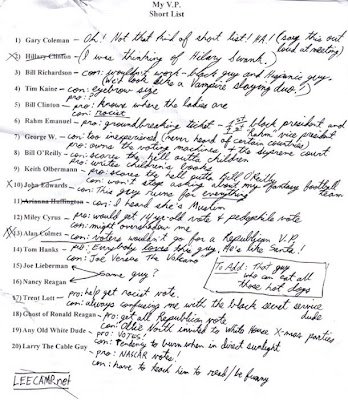 My V.P.
Short List
1) Gary Coleman - Oh! Not that kind of short list! HA! (say this out loud at meeting)
2) Hillary Clinton - (I was thinking of Hilary Swank.)
3) Bill Richardson - con: wouldn't work - black guy and Hispanic guy.
(We'd look like a Vampire slaying duo!)
4) Tim Kaine - con: eyebrow size
pro: ??
5) Bill Clinton - pro: Knows where the ladies are
con: racist
6) Rahm Emanuel - pro: groundbreaking ticket - 1st black president and
1st "Rahm" vice president
7) George W. - con: too inexperienced (never heard of certain countries)
pro: owns the voting machines + the supreme court
8) Bill O'Reilly - con: scares the hell outta children
pro: writes children's books
9) Keith Olbermann - pro: scares the hell outta Bill O'Reilly
con: won't stop asking about my fantasy football team
10) John Edwards - con: This guy runs for everything
11) Arianna Huffington - con: I heard she's Muslim
12) Miley Cyrus - pro: would get 14 year-old vote & pedophile vote
con: might overshadow me
13) Alan Colmes - con: Voters wouldn't go for a Republican V.P.
14) Tom Hanks - pro: Everybody loves this guy. He's like Santa!
con: Joe Versus The Volcano
15) Joe Lieberman
same guy?
16) Nancy Reagan
To Add: That guy
who can eat all
those hot dogs
17) Trent Lott - pro: help get racist vote.
con: always confusing me with the black secret service dude
18) Ghost of Ronald Reagan - pro: get all Republican vote
con: Ollie North invited to White House X-mas parties
19) Any Old White Dude - pro: VOTES!
con: Tendency to burn when in direct sunlight
20) Larry The Cable Guy - pro: NASCAR vote!
con: have to teach him to read/be funny
LEECAMP.net